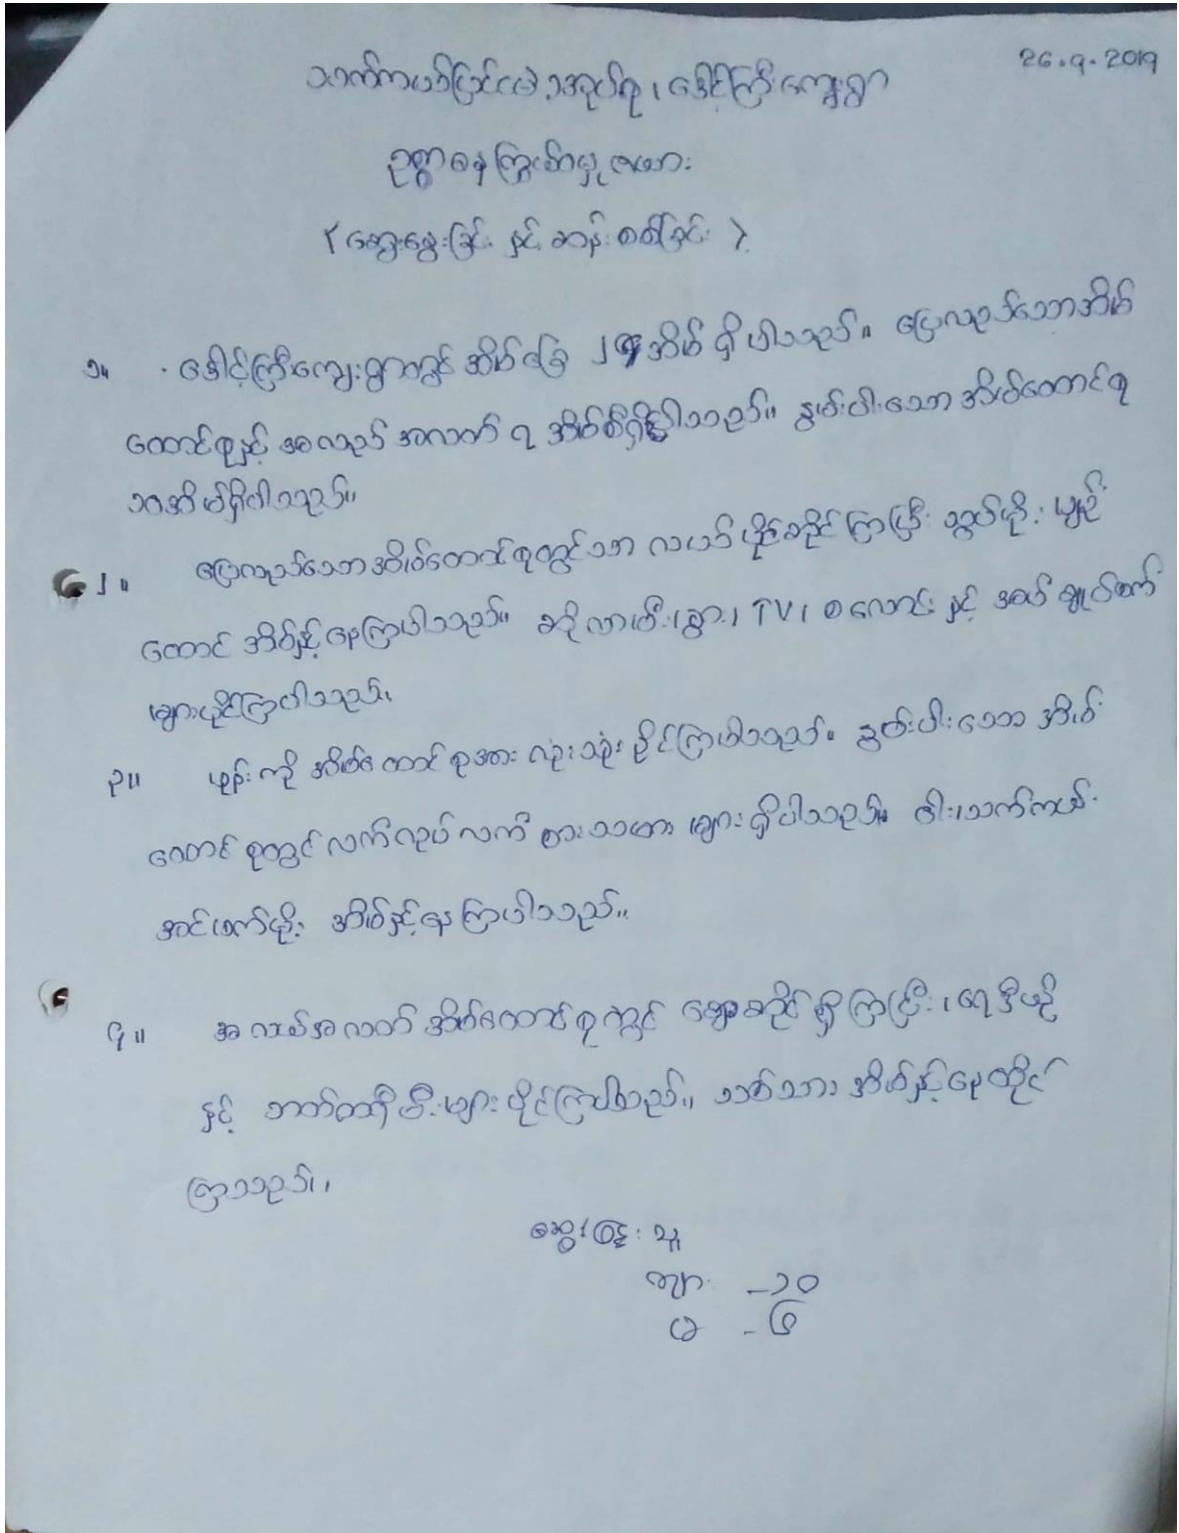 26.9.2019
သက်ကယ်ပြင်ငမဲ့ အုပ်စု၊ ခေါင်ကြီးကျေးရွာ
ဥစ္စာဓနကြွယ်ဝမှု ဇယား
(ဆွေးနွေးခြင်း နှင့် ဆန်းစစ်ခြင်း)
၁။ ခေါင်ကြီးကျေးရွာတွင် အိမ်ခြေ အိမ် ရှိပါသည်။ ပြေလည်သောအိမ်
ထောင်စုနှင့် အလည်အလတ် ၇ အိမ်စီရှိပါသည်။ နွမ်းပါးသော အိမ်ထောင်စု
၁၀အိမ်ရှိပါသည်။
၂။ ပြေလည်သောအိမ်ထောင်စုတွင်သာ လယ်ပိုင်ဆိုင်ကြပြီး သွပ်မိုး ပျဉ်
ထောင် အိမ်နှင့်နေကြပါသည်။ ဆိုလာမီး၊ နွား၊ TV၊ စလောင်း နှင့် အပ်ချုပ်စက်
များပိုင်ကြပါသည်။
၃။ ဖုန်းကို အိမ်ထောင်စုအားလုံးသုံးနိုင်ကြပါသည်။ နွမ်းပါးသော အိမ်
ထောင်စုတွင် လက်လုပ်လက်စားသမား များရှိပါသည်။ ဝါး၊သက်ကယ်
အင်ဖက်မိုး အိမ်နှင့်နေကြပါသည်။
၄။ အလယ်အလတ် အိမ်ထောင်စုတွင် ဈေးဆိုင်ရှိကြပြီး၊ ရေဒီယို
နှင့် ဘက်ထရီမီးများ ပိုင်ကြပါသည်။ သစ်သား အိမ်နှင့်နေထိုင်
ကြသည်။
ဆွေးနွေးသူ
ကျား -၁၀
မ -၆